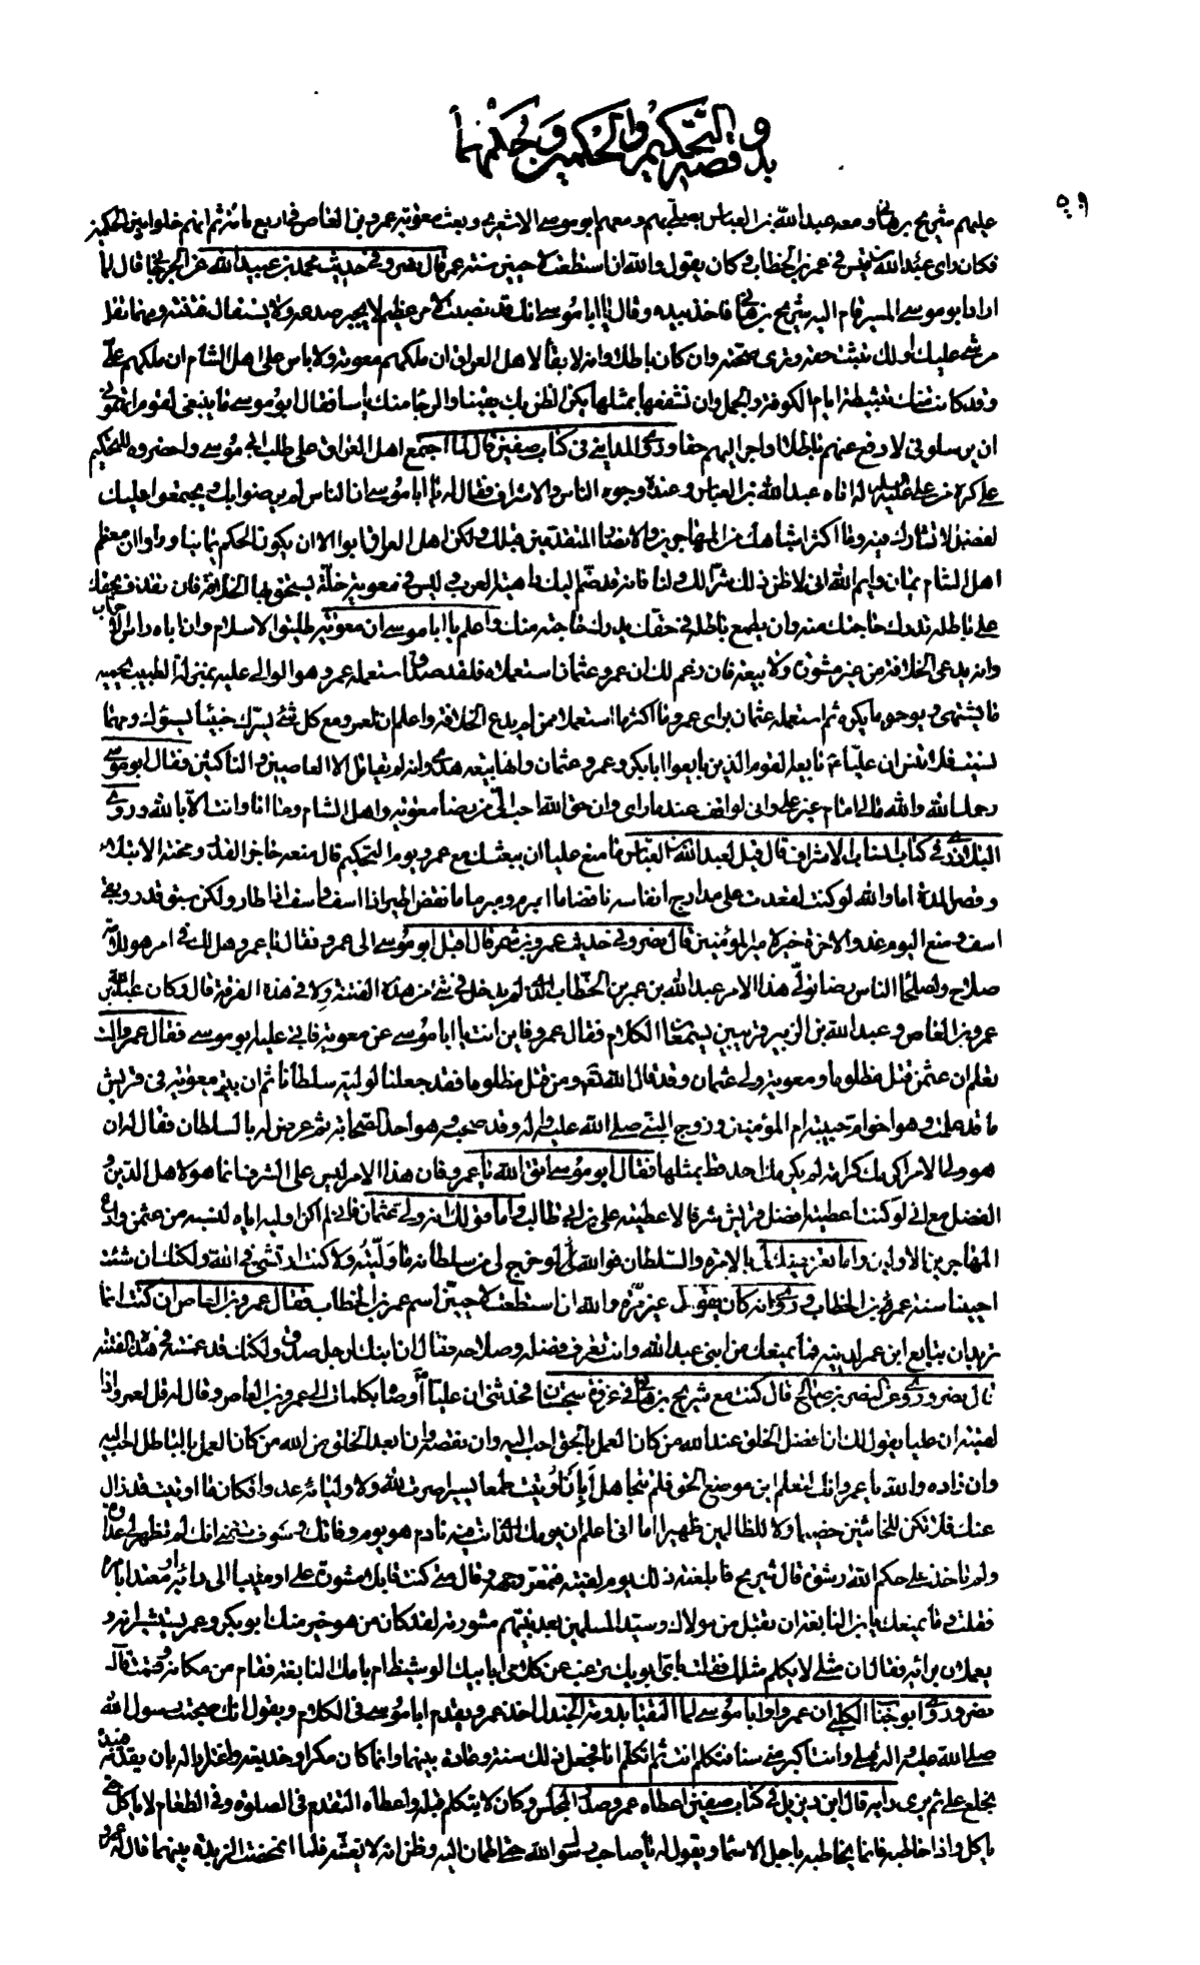 في التحكيم والحكمين وبحكمهما
بدو قصة
٥٩
عليهم شريح بن هاني ومعه عبد الله بن العباس يصلي بهم ومعهم ابو موسى الاشعري وبعث معوية عمرو بن العاص في اربع مائة ثم انهم خلوا بين الحكمين
فكان راى عبد الله بن قيس في عمر بن الخطاب وكان يقول والله ان استطعت لاحيين سنة عمر قال نصر وفي حديث محمد بن عبيد الله عن الجرجاني قال لما
اراد ابو موسى المسير قام اليه شريح بن هاني فاخذ بيده وقال يا ابا موسى انك قد نصبت لامر عظيم لا يجبر صدعه ولا يستقال فتنته ومهما تقل
من شئ عليك او لك يثبت حقه ويرى صحته وان كان باطلا وانه لا بقاء لاهل العراق ان ملكهم معوية ولا باس على اهل الشام ان ملكهم علي
وقد كانت منك تثبيطة ايام الكوفة والجمل وان تشفعها بمثلها يكن الظن بك يقينا والرجا منك ياسا فقال ابو موسى ما ينبغي لقوم اتهموني
ان يرسلوني لادفع عنهم باطلا واجر اليهم حقا وروى المدايني في كتاب صفين قال لما اجتمع اهل العراق على طلب ابي موسى واحضروه للتحكيم
على كره من علي عليه السلام اتاه عبد الله بن العباس وعنده وجوه الناس والاشراف فقال له يا ابا موسى ان الناس لم يرضوا بك ويجتمعوا عليك
لفضل لا تشارك فيه وما اكثر اشباهك من المهاجرين والانصار المتقدمين قبلك ولكن اهل العراق ابوا الا ان يكون الحكم يمانيا وراوا ان معظم
اهل الشام يمان وايم الله اني لاظن ذلك شرا لك ولنا فانه قد ضم اليك داهية العرب وليس في معوية خلة يستحق بها الخلافة فان تقذف بحقك
على باطله تدرك حاجتك منه وان يطمع باطله في حقك يدرك حاجته منك واعلم يا ابا موسى ان معوية طليق الاسلام وان اباه راس الاحزاب
وانه يدعي الخلافة من غير مشورة ولا بيعة فان زعم لك ان عمر وعثمان استعملاه فلقد صدق استعمله عمر وهو الوالي عليه بمنزلة الطبيب يحميه
ما يشتهي ويوجره ما يكره ثم استعمله عثمان براى عمر وما اكثر ما استعملا ممن لم يدع الخلافة واعلم ان لعمرو مع كل شئ يسرك خبيئا يسوئك ومهما
نسيت فلا تنس ان عليا بايعه القوم الذين بايعوا ابا بكر وعمر وعثمان وانها بيعة هدى وانه لم يقاتل الا العاصين والناكثين فقال ابو موسى
رحمك الله والله مالي امام غير علي واني لواقف عند ما راى وان حق الله احب الي من رضا معوية واهل الشام وما انا وانت الا بالله وروى
البلاذري في كتاب انساب الاشراف قال قيل لعبد الله بن العباس ما منع عليا ان يبعثك مع عمرو يوم التحكيم قال منعه حاجز القدر ومحنة الابتلاء
وقصر المدة اما والله لو كنت لقعدت على مدارج انفاسه ناقضا ما ابرم ومبرما ما نقض اطير اذا اسف واسف اذا طار ولكن سبق قدر وبقى
اسف ومع اليوم غد والاخرة خير لامير المؤمنين قال نصر وفي حديث عمرو بن شمر قال اقبل ابو موسى الى عمرو فقال يا عمرو هل لك في امر هو للامة
صلاح ولصلحاء الناس رضا نولي هذا الامر عبد الله بن عمر بن الخطاب الذي لم يدخل في شئ من هذه الفتنة ولا في هذه الفرقة قال وكان عبد الله بن
عمرو بن العاص وعبد الله بن الزبير قريبين يسمعان الكلام فقال عمرو فاين انت يا ابا موسى عن معوية فابى عليه ابو موسى فقال عمرو الست
تعلم ان عثمن قتل مظلوما ومعوية ولي عثمان وقد قال الله تعالى ومن قتل مظلوما فقد جعلنا لوليه سلطانا ثم ان بيت معوية في قريش
ما قد علمت وهو اخو ام حبيبة ام المؤمنين وزوج النبي صلى الله عليه وآله وقد صحبه وهو احد الصحابة ثم عرض له بالسلطان فقال له ان
هو ولي الامر اكرمك كرامة لم يكرمك احد قط بمثلها فقال ابو موسى اتق الله يا عمرو فان هذا الامر ليس على الشرف انما هو لاهل الدين و
الفضل مع اني لو كنت اعطيه افضل قريش شرفا لاعطيته علي بن ابي طالب واما قولك انه ولي عثمان فاني لم اكن اوليه اياه لنسبه من عثمن وادع
المهاجرين الاولين واما تعريضك لي بالامرة والسلطان فوالله لو خرج لي من سلطانه ما وليته ولا كنت ارتشي في الله ولكنك ان شئت
احيينا سنة عمر بن الخطاب وروى انه كان يقول غير مرة والله ان استطعت لاحيين اسم عمر بن الخطاب فقال عمرو بن العاص ان كنت انما
تريد ان تبايع ابن عمر لدينه فما يمنعك من ابني عبد الله وانت تعرف فضله وصلاحه فقال ان ابنك لرجل صدق ولكنك قد غمسته في هذه الفتنة
قال نصر وروى عن النضر بن صالح قال كنت مع شريح بن هاني في غزوة سجستان فحدثني ان عليا اوصاه بكلمات الى عمرو بن العاص وقال له قل لعمرو اذا
لقيته ان عليا يقول لك ان افضل الخلق عند الله من كان العمل بالحق احب اليه وان نقصه وان ابعد الخلق من الله من كان العمل بالباطل احب اليه
وان زاده والله يا عمرو انك لتعلم اين موضع الحق فلم تتجاهل ابان اوتيت طمعا يسيرا صرت لله ولاوليائه عدوا فكان ما اوتيت قد زال
عنك فلا تكن للخائنين خصيما ولا للظالمين ظهيرا اما اني اعلم ان يومك الذي انت فيه نادم هو يوم وفاتك وسوف تتمنى انك لم تظهر لي عداوة
ولم تاخذ على حكم الله رشوة قال شريح فابلغته ذلك يوم لقيته فتمعر وجهه وقال متى كنت قابلا مشورة علي او منيبا الى رايه او معتدا بامره
فقلت وما يمنعك يا بن النابغة ان تقبل من مولاك وسيد المسلمين بعد نبيهم مشورته لقد كان من هو خير منك ابو بكر وعمر يستشيرانه و
يعملان برايه فقال ان مثلي لا يكلم مثلك فقلت باي ابويك ترغب عن كلامي ابابيك الوشيظ ام بامك النابغة فقام من مكانه وقمت قال
نصر وروى ابو جناب الكلبي ان عمرا وابا موسى لما التقيا بدومة الجندل اخذ عمرو يقدم ابا موسى في الكلام ويقول انك صحبت رسول الله
صلى الله عليه وآله قبلي وانت اكبر مني سنا فتكلم انت ثم اتكلم انا فجعل ذلك سنة وعادة بينهما وانما كان مكرا وخديعة واغترارا له بان يقدمه فيبدأ
بخلع علي ثم يرى رايه قال ابن ديزيل في كتاب صفين اعطاه عمرو صدر المجلس وكان لا يتكلم قبله واعطاه التقدم في الصلوة وفي الطعام لا ياكل حتى
ياكل واذا خاطبه فانما يخاطبه باجل الاسماء ويقول له يا صاحب رسول الله حتى اطمان اليه وظن انه لا يغشه فلما انمخضت الزبدة بينهما قال له عمرو